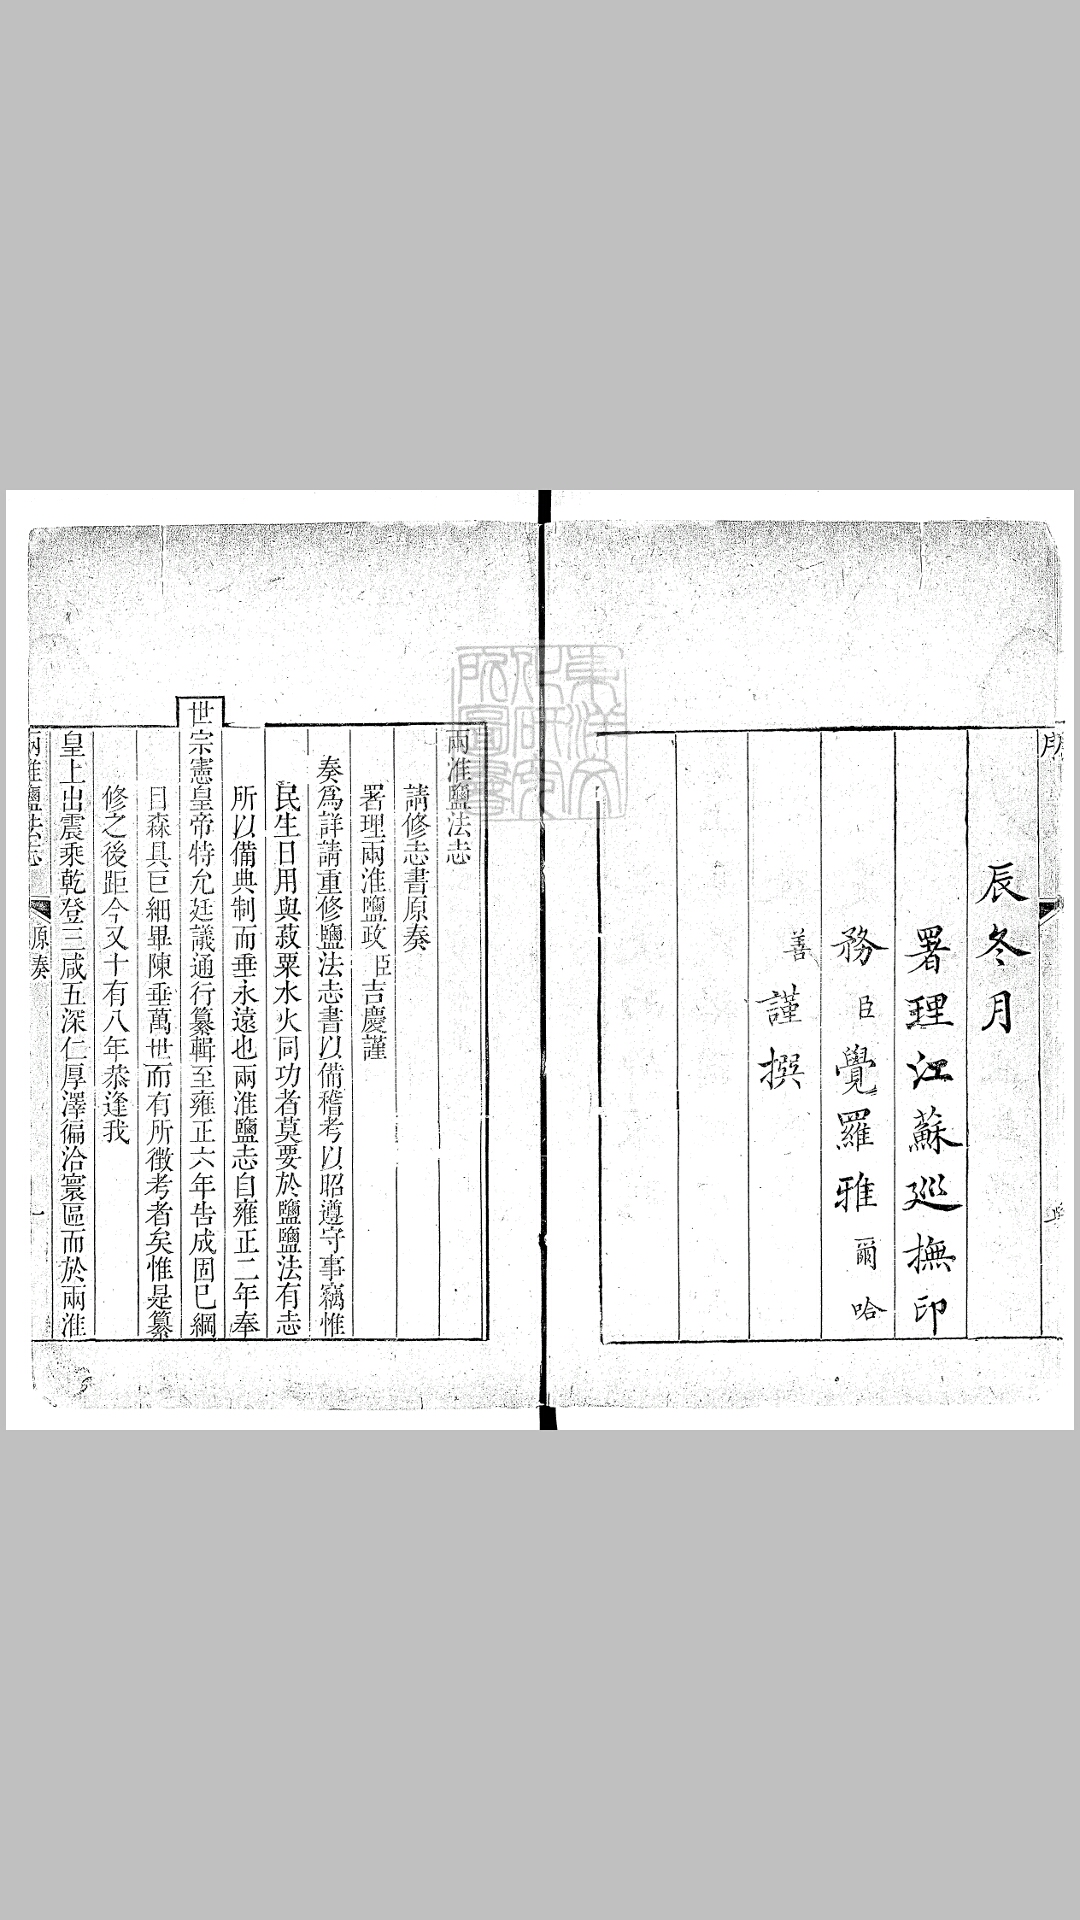 辰冬月
署理江蘇巡撫印
務臣覺羅雅爾哈
善謹撰
兩淮鹽法志
請修志書原奏
署理兩淮鹽政臣吉慶謹
奏爲詳請重修鹽法志書以備稽考以昭遵守事竊惟
民生日用與菽粟水火同功者莫要於鹽鹽法有志
所以備典制而垂永遠也兩淮鹽志自雍正二年奉
世宗憲皇帝特允廷議通行纂輯至雍正六年告成固已綱
目森具巨細畢陳垂萬世而有所徵考者矣惟是纂
修之後距今又十有八年恭逢我
皇上出震乘乾登三咸五深仁厚澤徧洽寰區而於兩淮
兩淮鹽法志 原奏 一